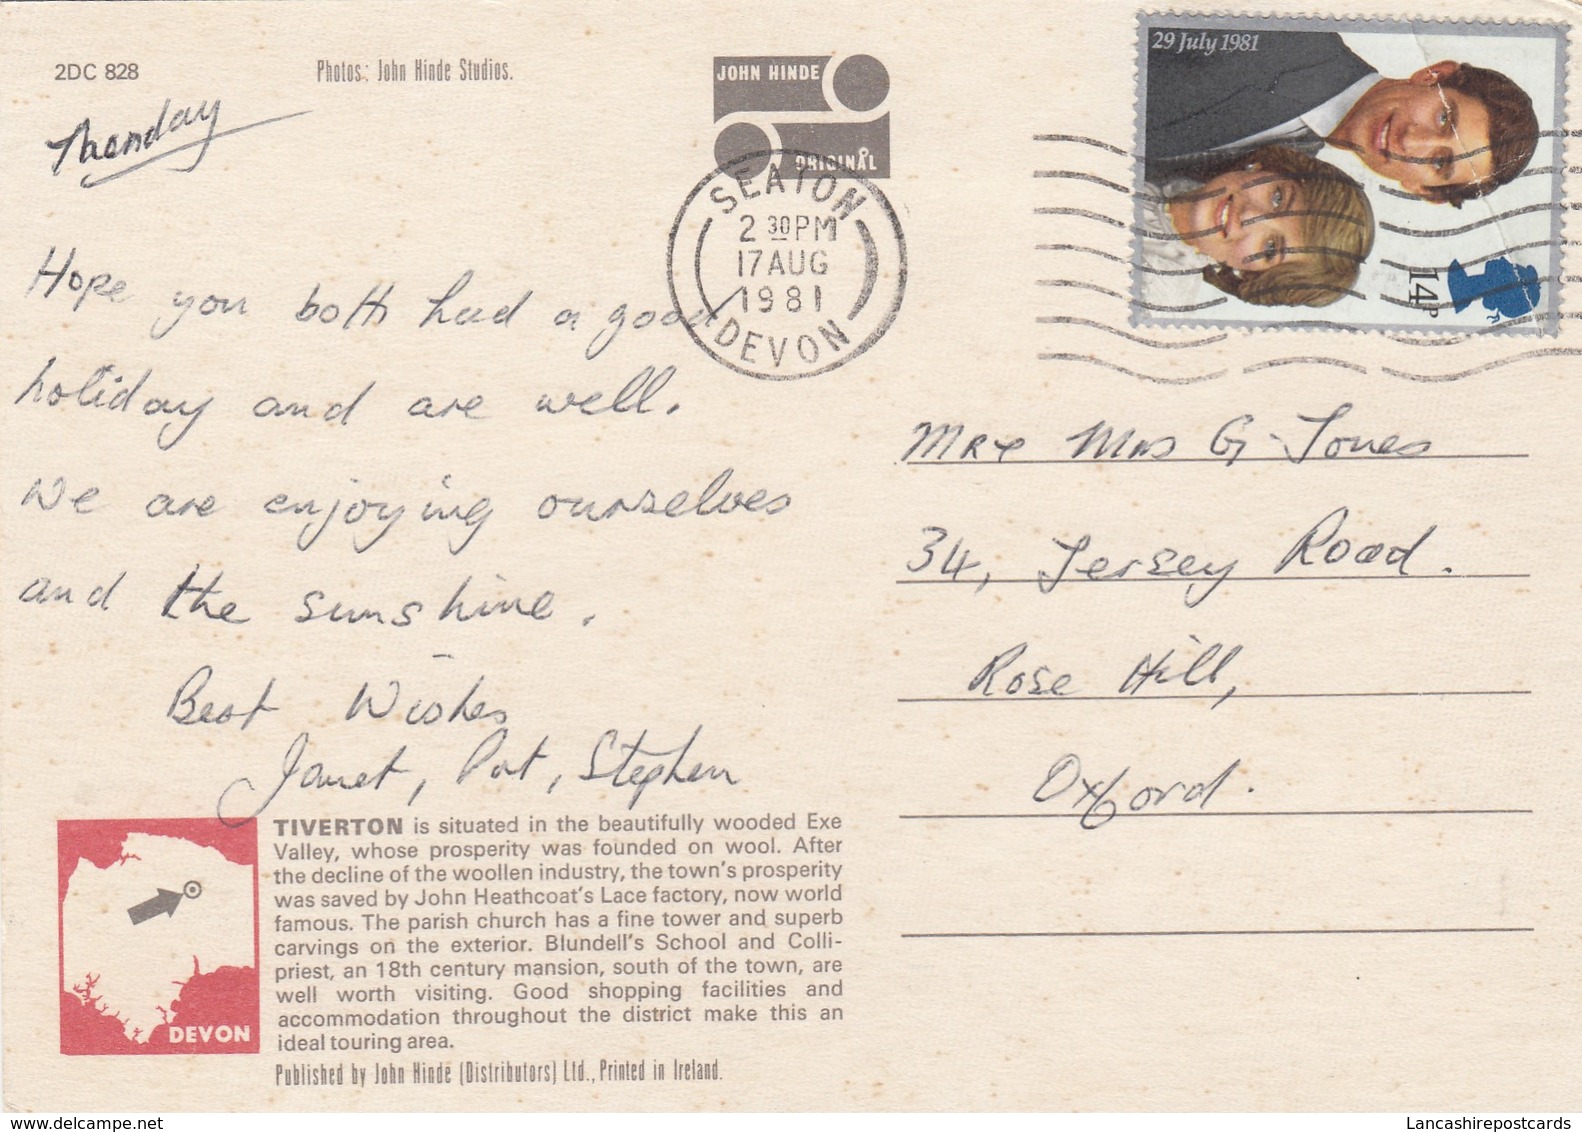 2DC 828
Photos: John Hinde Studios.
JOHN HINDE
ORIGINAL
29 July 1981
14P
SEATON
2 30 PM
17 AUG
1981
DEVON
Monday
Hope you both had a good
holiday and are well.
We are enjoying ourselves
and the sunshine.
Best Wishes
Janet, Pat, Stephen
Mr & Mrs G Jones
34, Jersey Road.
Rose Hill,
Oxford.
TIVERTON is situated in the beautifully wooded Exe
Valley, whose prosperity was founded on wool. After
the decline of the woollen industry, the town's prosperity
was saved by John Heathcoat's Lace factory, now world
famous. The parish church has a fine tower and superb
carvings on the exterior. Blundell's School and Colli-
priest, an 18th century mansion, south of the town, are
well worth visiting. Good shopping facilities and
accommodation throughout the district make this an
ideal touring area.
DEVON
Published by John Hinde (Distributors) Ltd., Printed in Ireland.
Lancashirepostcards